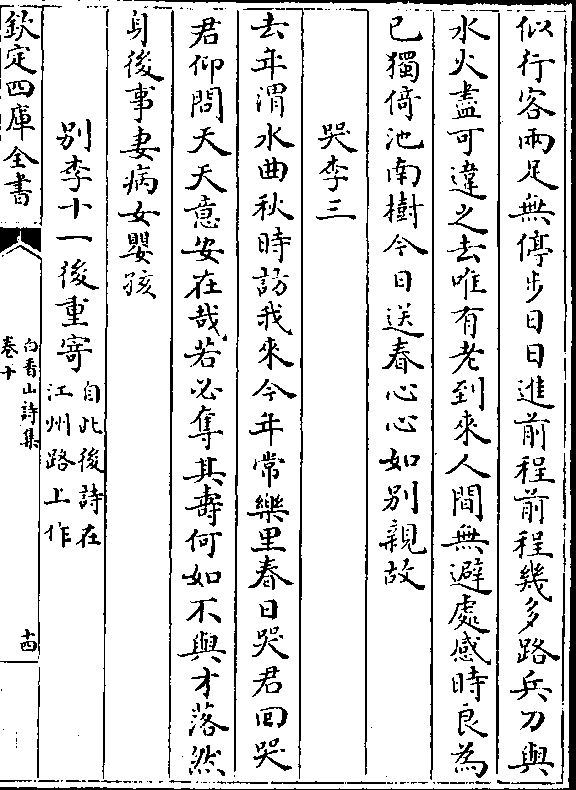 似行客兩足無停步日日進前程前程幾多路兵刀與
水火盡可違之去唯有老到來人間無避處感時良為
已獨倚池南樹今日送春心心如别親故
哭李三
去年渭水曲秋時訪我來今年常樂里春日哭君回哭
君仰問天天意安在哉若必奪其壽何如不與才落然
身後事妻病女嬰孩
别李十一後重寄
自此後詩在
江州路上作
欽定四庫全書
白香山詩集
卷十
十四